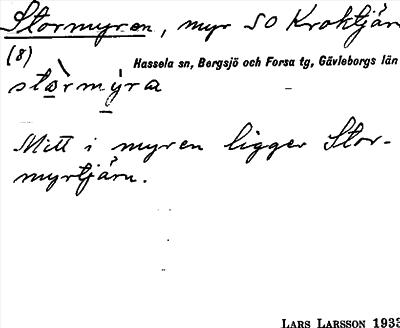 Stormyren, myr SO Kroktjärn
(8)
Hassela sn, Bergsjö och Forsa tg, Gävleborgs län
stòrmýra
Mitt i myren ligger Stor-
myrtjärn.
LARS LARSSON 1933